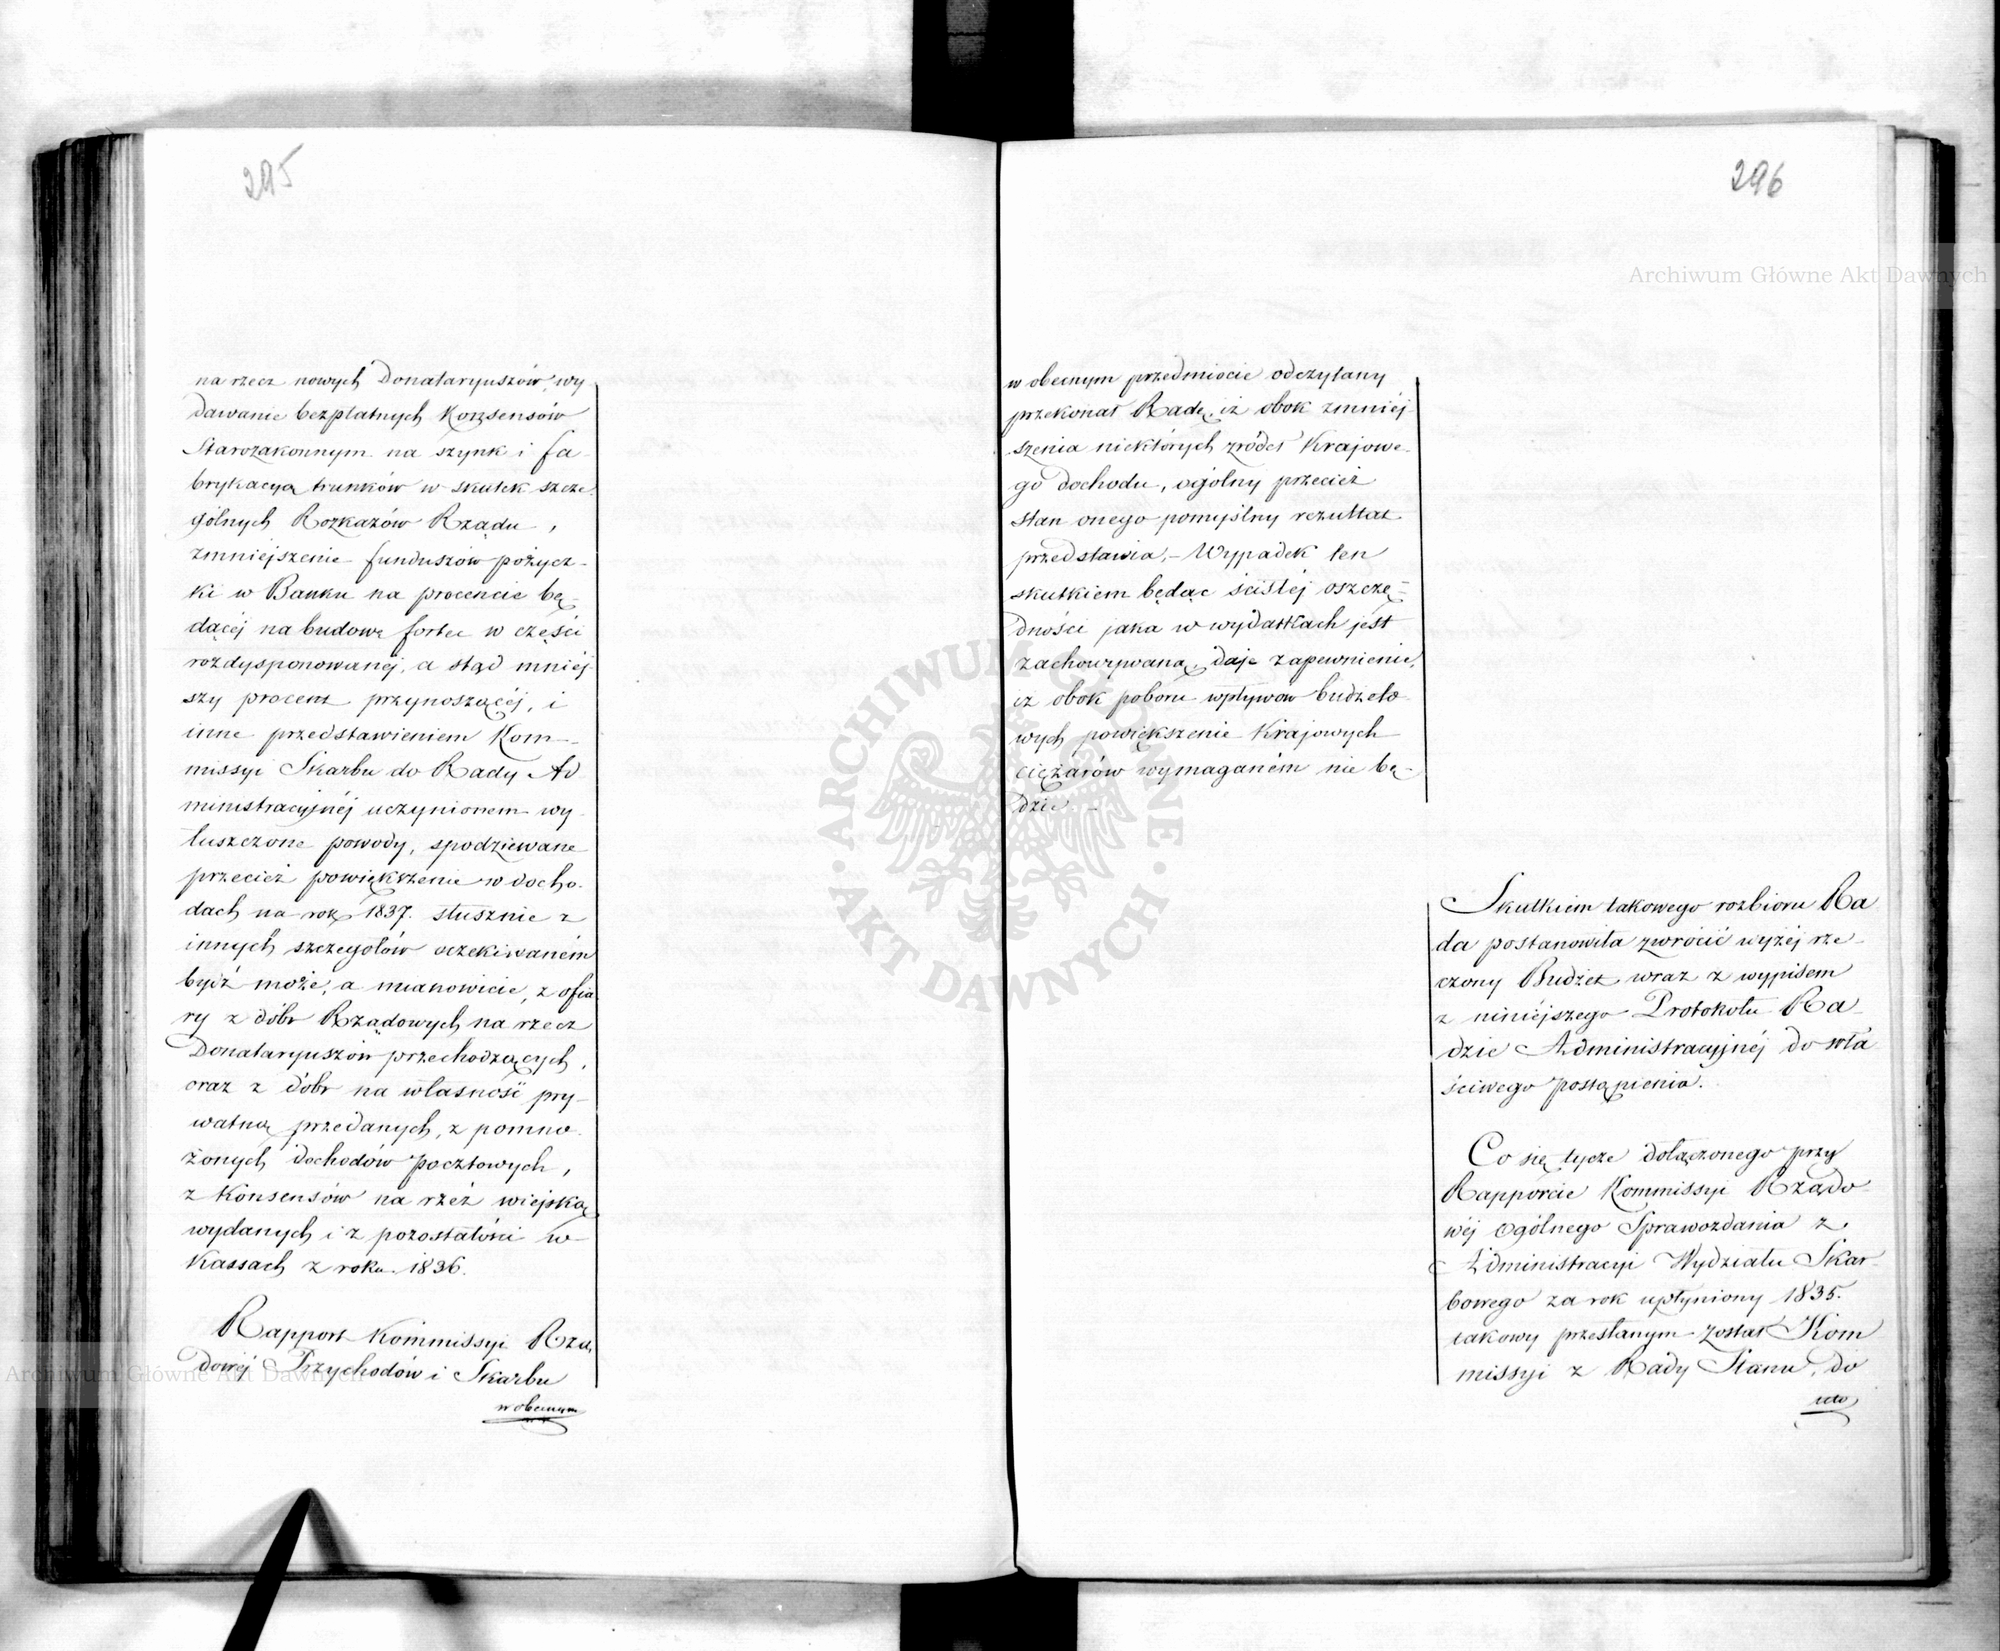 295
na rzecz nowych Donataryuszów, wy
dawanie bezpłatnych Konsensów
Starozakonnym na szynk i fa-
brykacyą trunków w skutek szcze
gólnych Rozkazów Rządu,
zmniejszenie funduszów pożycz-
ki w Banku na procencie bę-
dącéj na budowę fortec w części
rozdysponowanéj, a stąd mniéj
szy procent przynoszącéj, i
inne przedstawieniem Kom-
missyi Skarbu do Rady Ad
ministracyjnéj uczynionem wy
łuszczone powody, spodziewane
przecież powiększenie w docho-
dach na rok 1837. słusznie z
innych szczegółów oczekiwaném
bydź może, a mianowicie, z ofia
ry z dóbr Rządowych na rzecz
Donataryuszów przechodzących,
oraz z dóbr na własność pry-
watną przedanych, z pomno
żonych dochodów pocztowych,
z Konsensów na rzeź wiejską
wydanych i z pozostałości w
Kassach z roku 1836.
Rapport Kommissyi Rzą
dowéj Przychodów i Skarbu
w obecnym
296
w obecnym przedmiocie odczytany
przekonał Radę, iż obok zmniéj
szenia niektórych zródeł Krajowe-
go dochodu, ogólny przecież
stan onego pomyślny rezultat
przedstawia. – Wypadek ten
skutkiem będąc ścisłéj oszczę-
dności jaka w wydatkach jest
zachowywaną, daje zapewnienie,
iż obok poboru wpływów budżeto
wych powiększenie Krajowych
ciężarów wymaganém nie bę-
dzie –
Skutkiem takowego rozbioru Ra
da postanowiła zwrócić wyżéj rze-
czony Budżet wraz z wypisem
z niniéjszego Protokołu Ra-
dzie Administracyjnéj do wła
ściwego postąpienia.
Co się tycze dołączonego przy
Rapporcie Kommissyi Rządo-
wéj Ogólnego Sprawozdania z
Administracyi Wydziału Skar-
bowego za rok upłyniony 1835.
takowy przesłanym został Kom
missyi z Rady Stanu, do
Archiwum Główne Akt Dawnych
Archiwum Główne Akt Dawnych
ARCHIWUM GŁÓWNE · AKT DAWNYCH ·